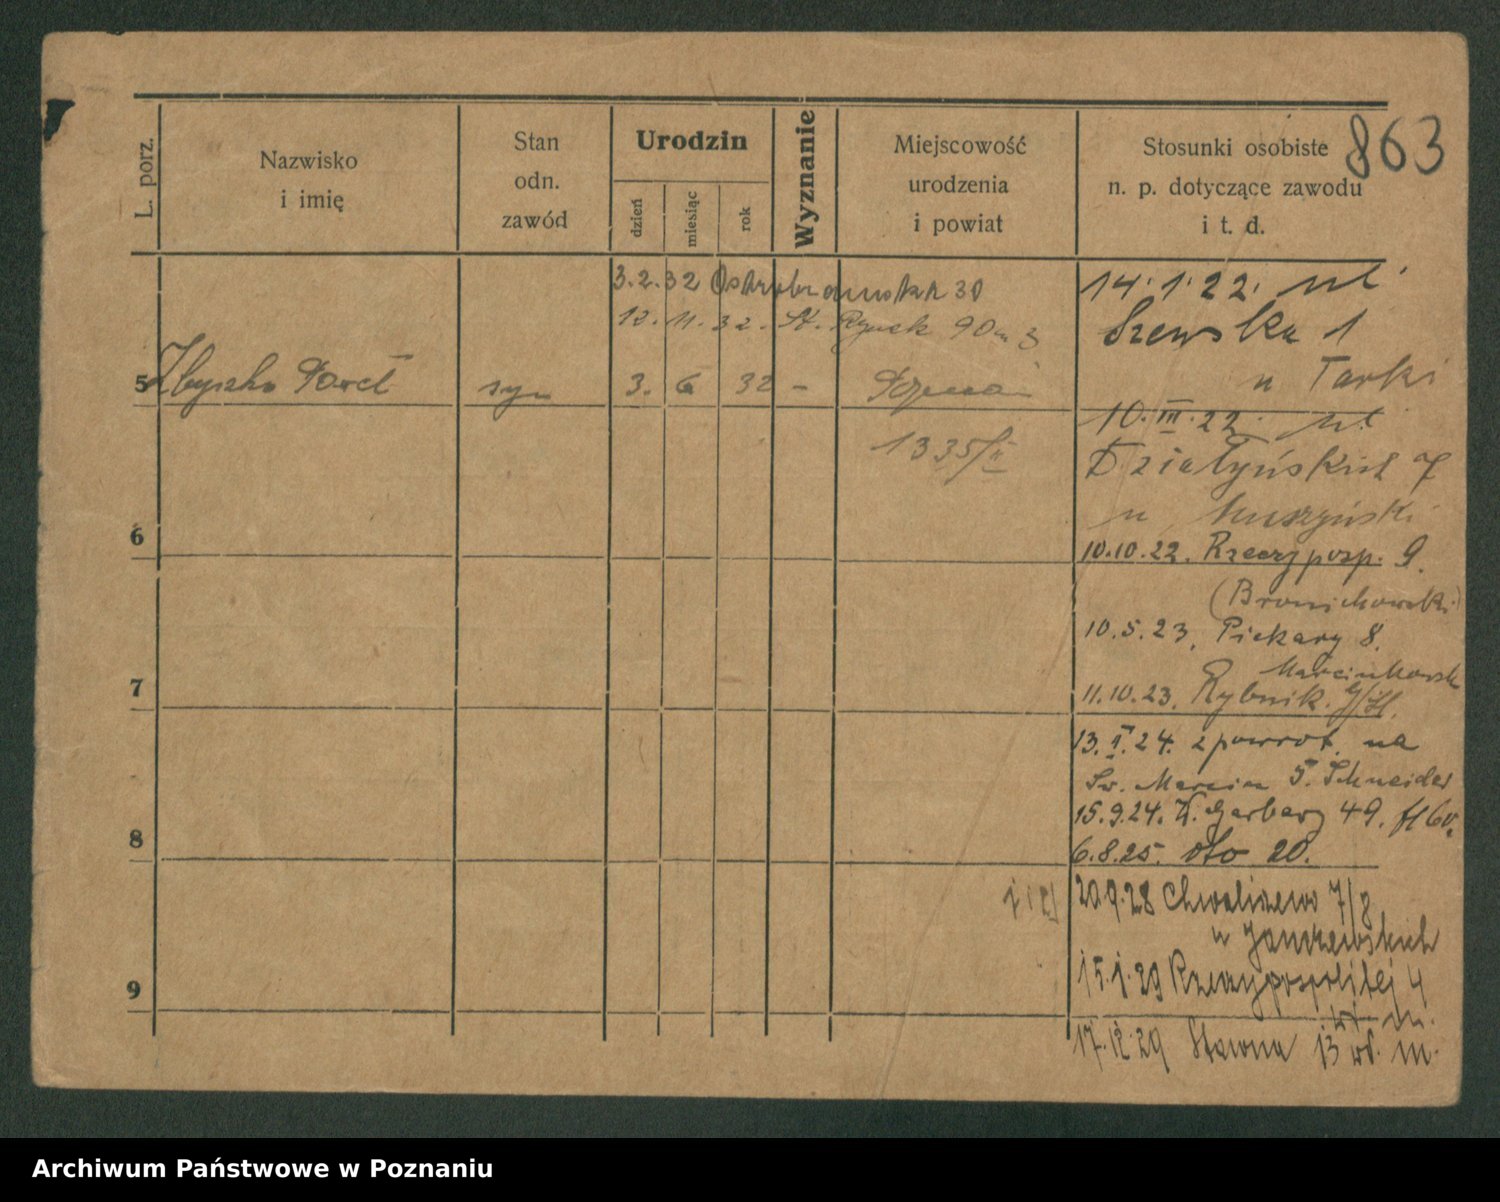 863
L. porz.
Nazwisko
i imię
Stan
odn.
zawód
Urodzin
dzień
miesiąc
rok
Wyznanie
Miejscowość
urodzenia
i powiat
Stosunki osobiste
n. p. dotyczące zawodu
i t. d.
3.2.32 30
12. 11. 32. St. Rynek 90 m 3
5 Zbyszko syn 3. 6 32 -
1335/II
6
7
8
9
14.1.22. ul
Szewska 1
u Tarki
10.III.22. ul.
Działyńskich 7
u
10.10.22. Rzeczyposp. 9.
(Bronikowski)
10.5.23. Piekary 8.
Marcinkowsk
11.10.23. Rybnik. G/Śl.
13.I.24. z powrot. na
Św. Marcin 5. Schneider
15.9.24. W. Garbary 49.
6.8.25. oto 20.
20.9.28 Chwaliszewo 7/8
u Janczewskich
15.1.29 Rzeczypospolitej 4
wł. m.
17.12.29 Stawna 13 wł. m.
Archiwum Państwowe w Poznaniu